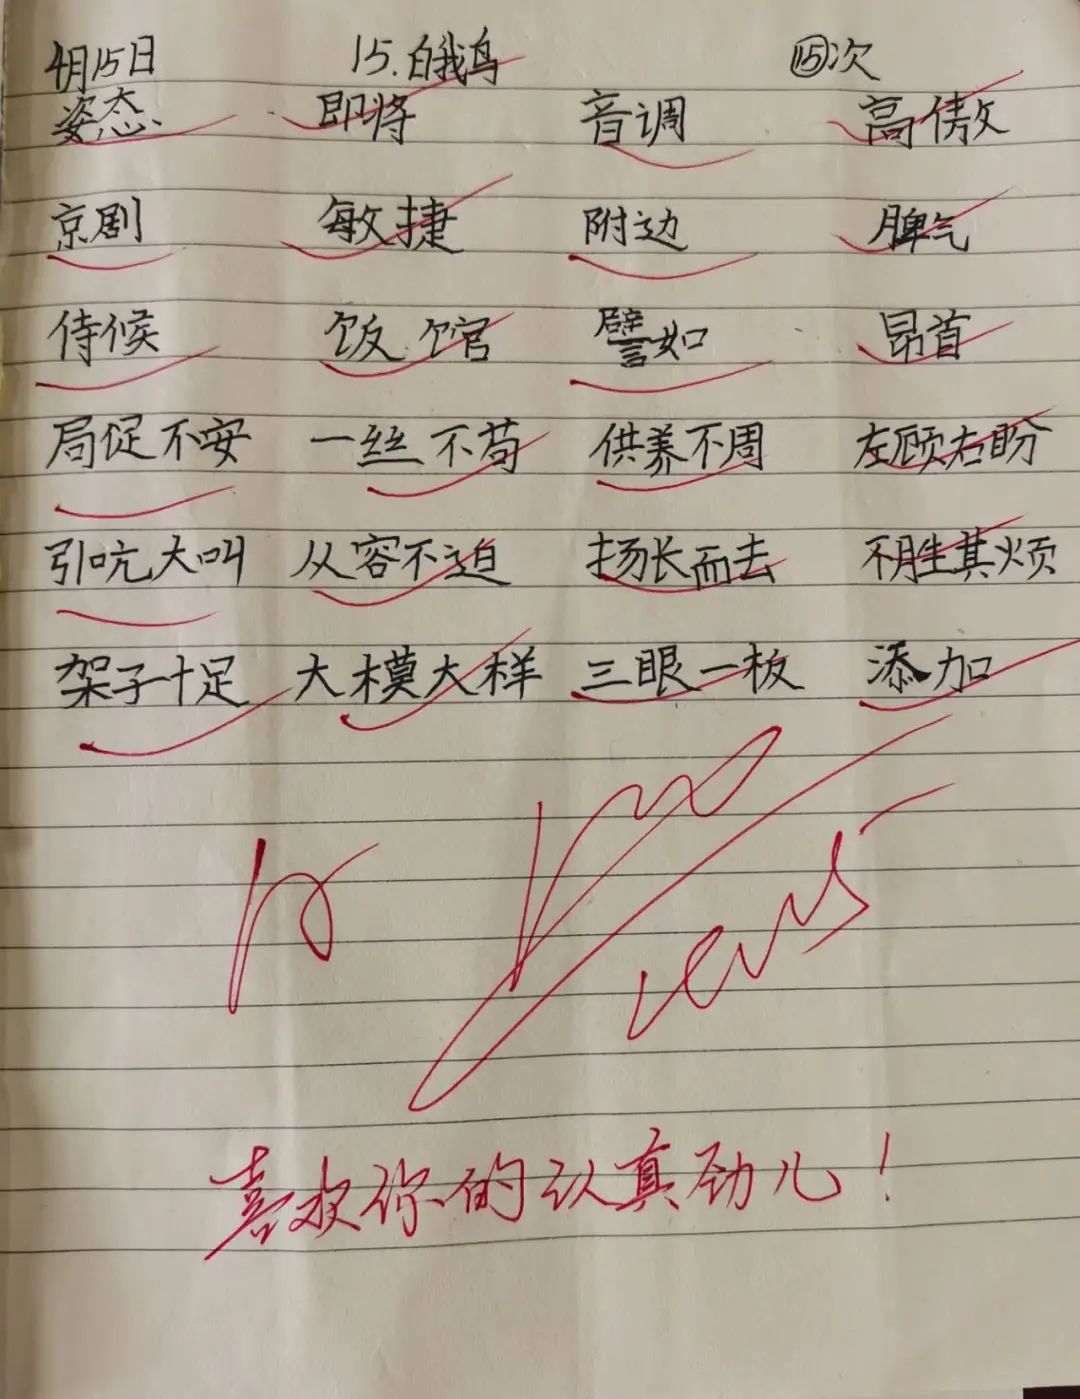 4月15日 15.白鹅 ⑮次
姿态 即将 音调 高傲
京剧 敏捷 附边 脾气
侍候 饭馆 譬如 昂首
局促不安 一丝不苟 供养不周 左顾右盼
引吭大叫 从容不迫 扬长而去 不胜其烦
架子十足 大模大样 三眼一板 添加
喜欢你的认真劲儿！